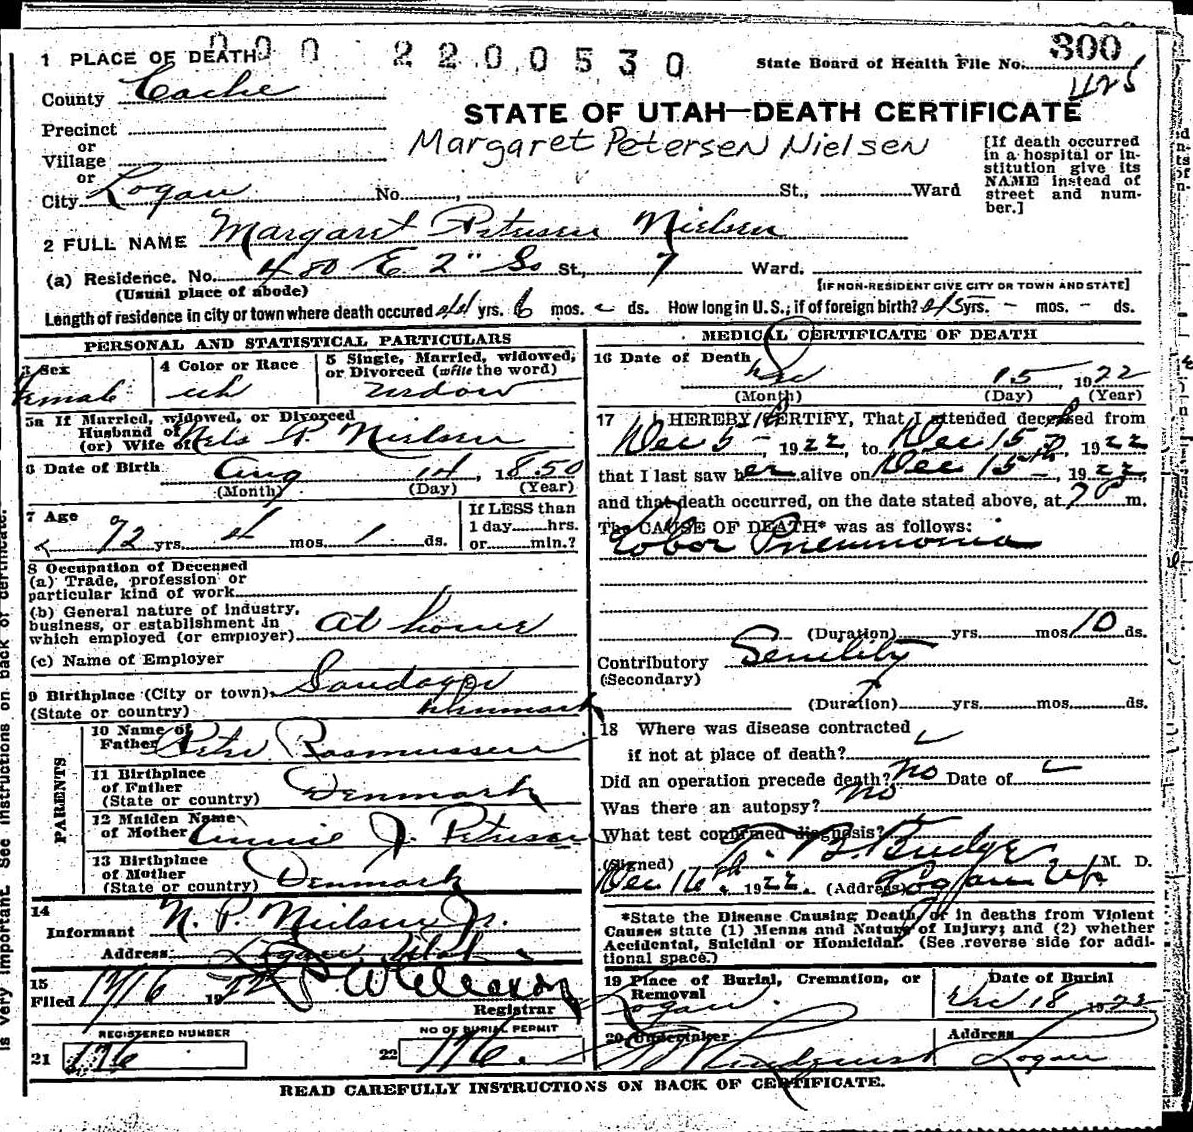 0 0 0 2 2 0 0 5 3 0
300
1 PLACE OF DEATH
State Board of Health File No.
425
County Cache
STATE OF UTAH—DEATH CERTIFICATE
Precinct
Margaret Petersen Nielsen
or
Village
or
City Logan No. St., Ward
[If death occurred
in a hospital or in-
stitution give its
NAME instead of
street and num-
ber.]
2 FULL NAME Margaret Petersen Nielsen
(a) Residence. No. 480 E 2" So St., 7 Ward.
(Usual place of abode)
[IF NON-RESIDENT GIVE CITY OR TOWN AND STATE]
Length of residence in city or town where death occured 44 yrs. 6 mos. ds. How long in U.S.; if of foreign birth? 45 yrs. - mos. - ds.
PERSONAL AND STATISTICAL PARTICULARS
3 Sex
Female
4 Color or Race
wh
5 Single, Married, widowed,
or Divorced (write the word)
widow
5a If Married, widowed, or Divorced
Husband of
(or) Wife of Nels P. Nielsen
6 Date of Birth Aug 14, 1850
(Month) (Day) (Year)
7 Age
72 yrs. 4 mos. 1 ds.
If LESS than
1 day hrs.
or min.?
8 Occupation of Deceased
(a) Trade, profession or
particular kind of work
(b) General nature of industry,
business, or establishment in
which employed (or employer) at home
(c) Name of Employer
9 Birthplace (City or town)
(State or country) Denmark
PARENTS
10 Name of
Father Peter Rasmussen
11 Birthplace
of Father
(State or country) Denmark
12 Maiden Name
of Mother Annie J. Petersen
13 Birthplace
of Mother
(State or country) Denmark
14
Informant N. P. Nielsen Jr.
Address Logan, Utah
15
Filed 12/16 1922
Registrar
REGISTERED NUMBER
21 176
NO OF BURIAL PERMIT
22 176.
MEDICAL CERTIFICATE OF DEATH
16 Date of Death
Dec 15, 1922
(Month) (Day) (Year)
17 I HEREBY CERTIFY, That I attended deceased from
Dec 5 -, 1922, to Dec 15th, 1922
that I last saw her alive on Dec 15th, 1922,
and that death occurred, on the date stated above, at m.
The CAUSE OF DEATH* was as follows:
Lobar Pneumonia
(Duration) yrs. mos. 10 ds.
Contributory Senility
(Secondary)
(Duration) yrs. mos. ds.
18 Where was disease contracted
if not at place of death?
Did an operation precede death? No Date of
Was there an autopsy? No
What test confirmed diagnosis?
(Signed) T. B. Budge M. D.
Dec 16th, 1922. (Address) Logan Ut
*State the Disease Causing Death, or in deaths from Violent
Causes state (1) Menns and Nature of Injury; and (2) whether
Accidental, Suicidal or Homicidal. (See reverse side for addi-
tional space.)
19 Place of Burial, Cremation, or
Removal
Logan
Date of Burial
Dec 18 1922
20 Undertaker
Lindquist
Address
Logan
READ CAREFULLY INSTRUCTIONS ON BACK OF CERTIFICATE.
is very important. See instructions on back of certificate.